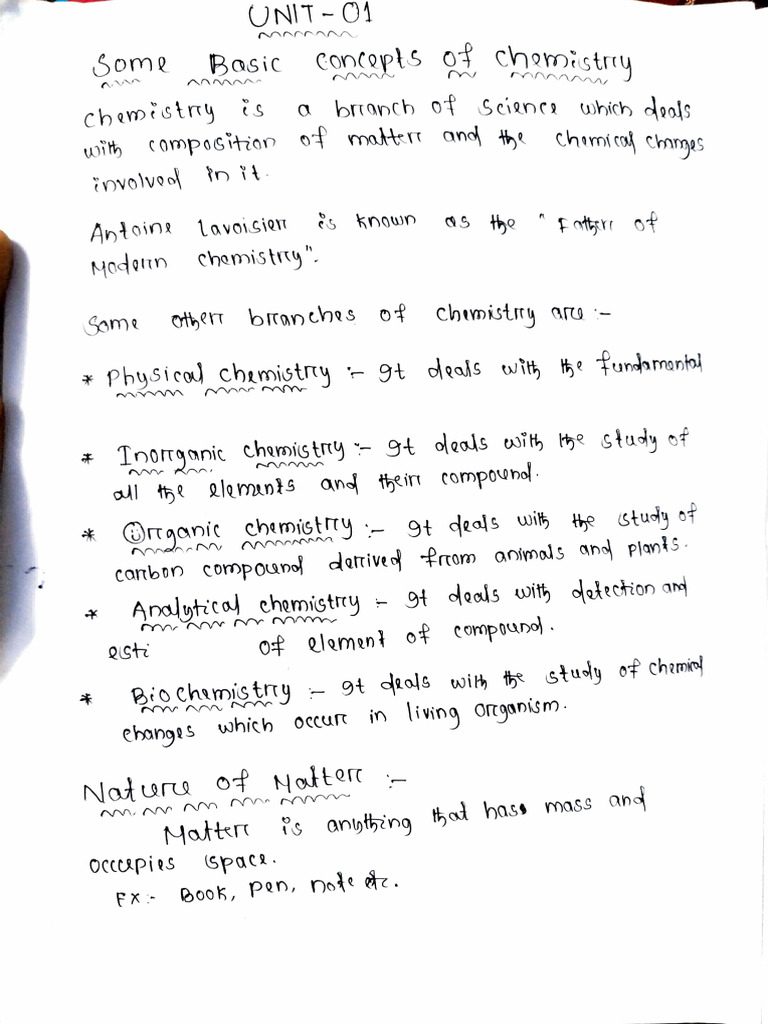 UNIT-01
Some Basic concepts of chemistry
chemistry is a branch of science which deals
with composition of matter and the chemical changes
involved in it.
Antoine lavoisier is known as the "Father of
Modern chemistry".
Some other branches of chemistry are :-
* Physical chemistry :- It deals with the fundamental
* Inorganic chemistry :- It deals with the study of
all the elements and their compound.
* Organic chemistry :- It deals with the study of
carbon compound derived from animals and plants.
* Analytical chemistry :- It deals with detection and
esti of element of compound.
* Biochemistry :- It deals with the study of chemical
changes which occur in living organism.
Nature of Matter :-
Matter is anything that has mass and
occupies space.
EX:- Book, pen, note etc.